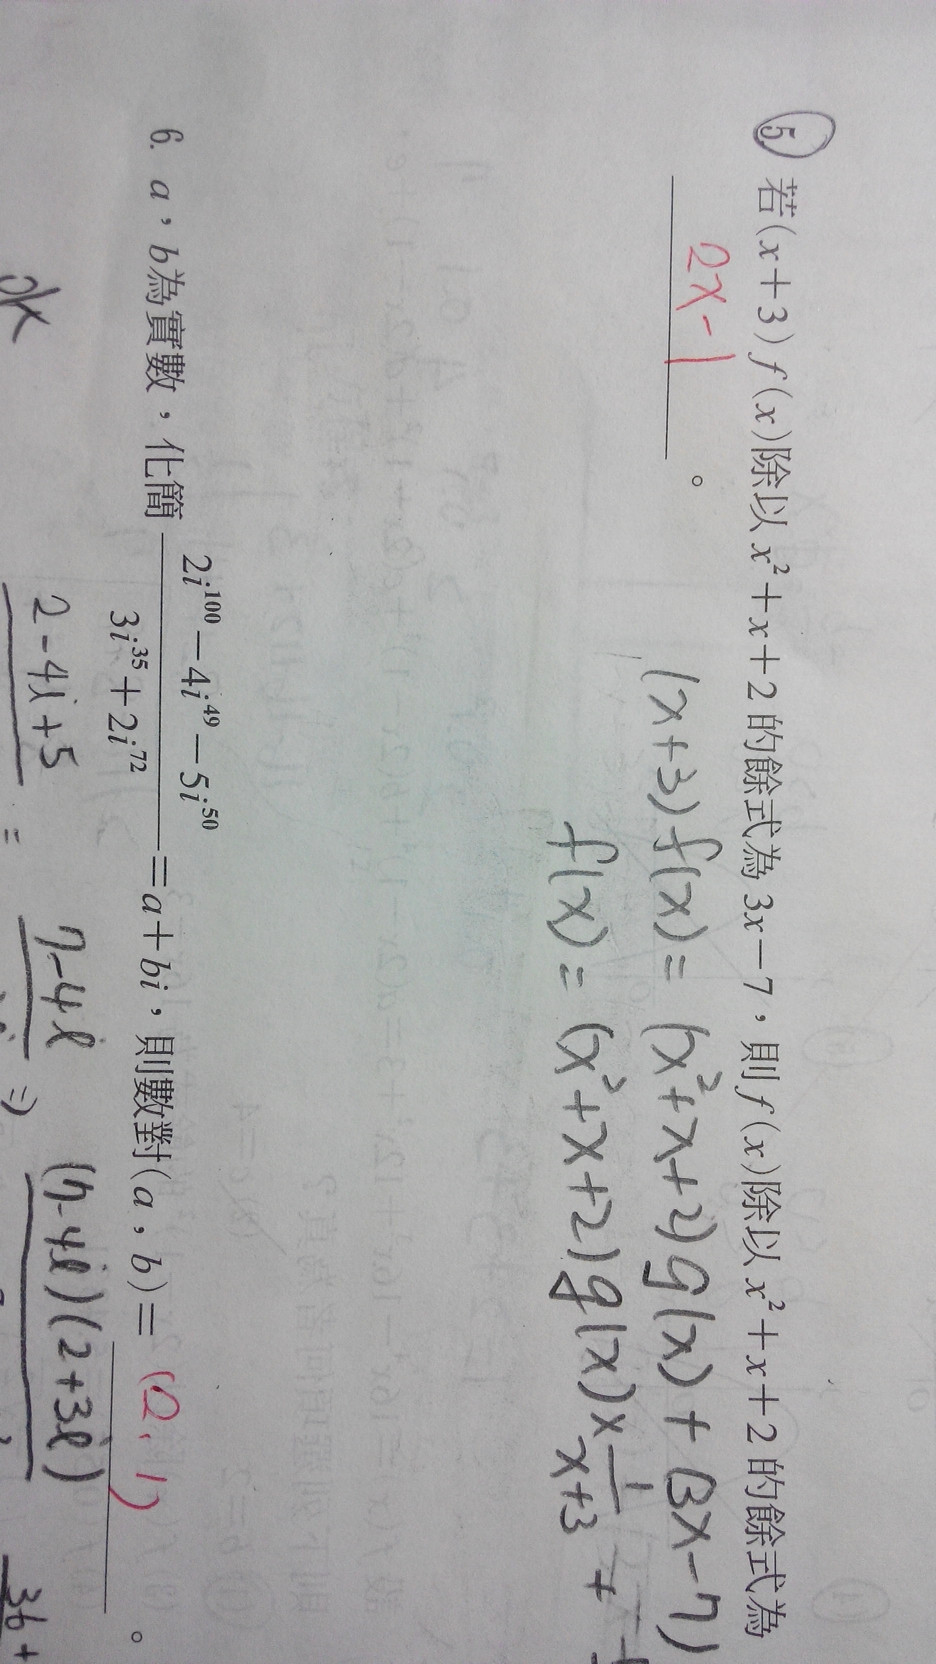 5. 若(x+3)f(x)除以x²+x+2的餘式為3x-7，則f(x)除以x²+x+2的餘式為
2x-1 。
(x+3)f(x)=(x²+x+2)g(x)+(3x-7)
f(x)=(x²+x+2)g(x)×1/(x+3)+
6. a，b為實數，化簡(2i¹⁰⁰-4i⁴⁹-5i⁵⁰)/(3i³⁵+2i⁷²)=a+bi，則數對(a，b)= (2,1) 。
2-4i+5 = 7-4i ⇒ (7-4i)(2+3i)